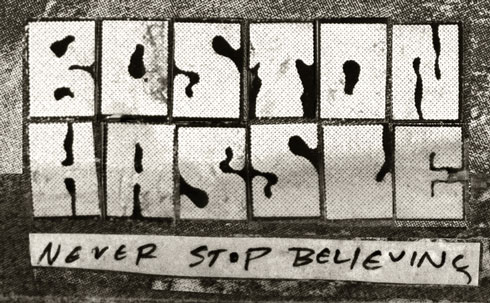 BOSTON
HASSLE
NEVER STOP BELIEVING